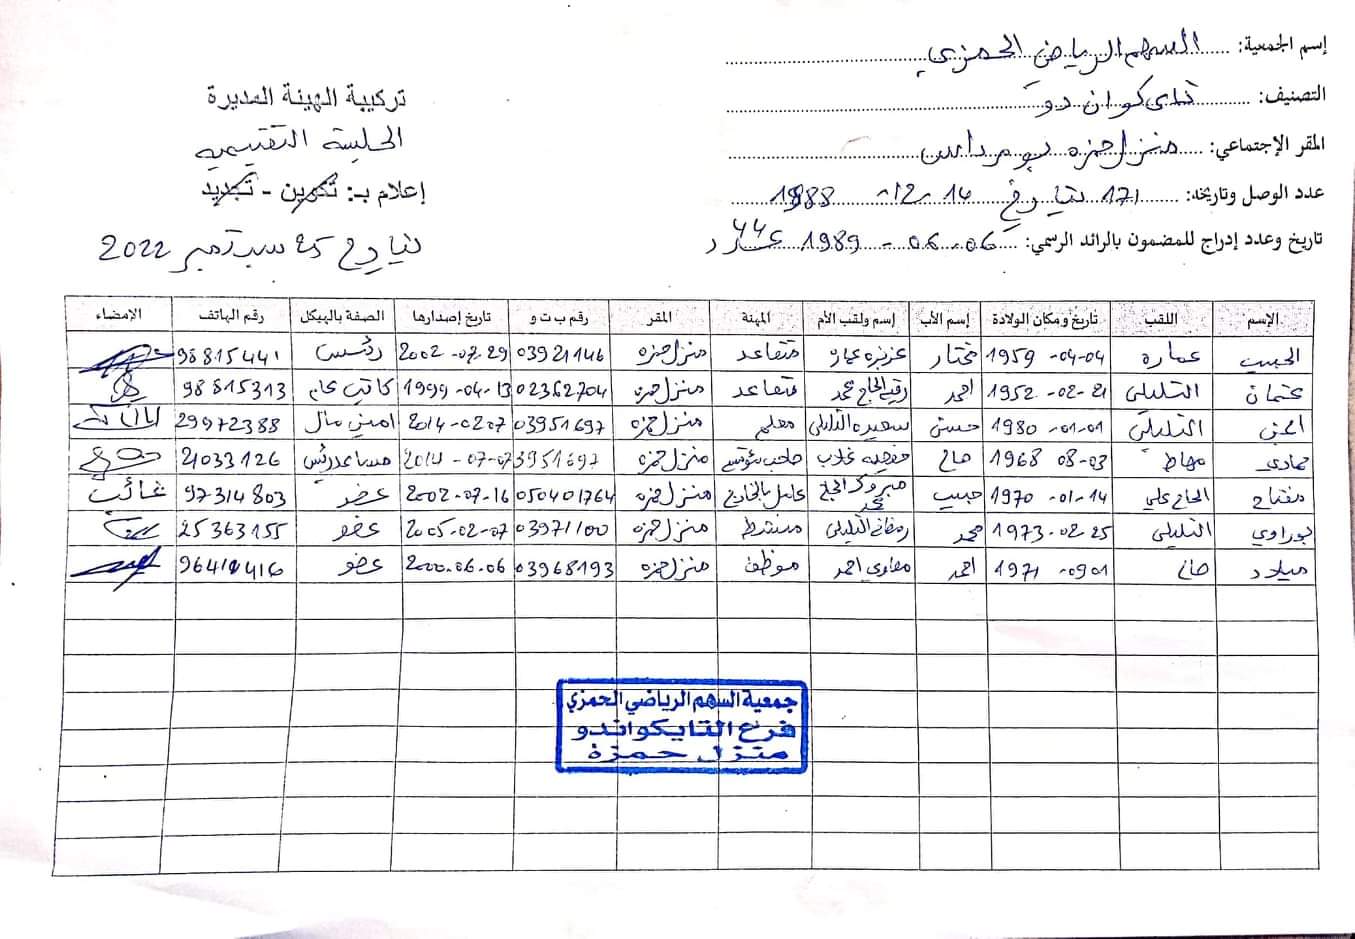 إسم الجمعية: السهم الرياضي الحمزي
التصنيف: تاي كوان دو
المقر الإجتماعي: منزل حمزه بومرداس
عدد الوصل وتاريخه: 171 بتاريخ 14 - 12 - 1988
تاريخ وعدد إدراج للمضمون بالرائد الرسمي: 06 - 06 - 1989 عدد 44
تركيبة الهيئة المديرة
الجلسة التقييمية
إعلام بـ: تكوين - تجديد
بتاريخ 25 سبتمبر 2022
الإسم اللقب تاريخ ومكان الولادة إسم الأب إسم ولقب الأم المهنة المقر رقم ب ت و تاريخ إصدارها الصفة بالهيكل رقم الهاتف الإمضاء
الحبيب عماره 04-04-1959 مختار عزيزه عمار متقاعد منزل حمزه 03921146 29-07-2002 رئيس 98815441
عثمان التليلي 21-02-1952 احمد رقيه الحاج محمد متقاعد منزل حمزه 02362704 13-04-1999 كاتب عام 98815313
التليلي 01-01-1980 حسن سعيده التليلي معلم منزل حمزه 03951697 07-02-2014 امين مال 29972388
حمادي 03-08-1968 صالح منزل حمزه 3951697 07-07-2014 مساعد رئيس 21033126
مفتاح الحاج علي 14-01-1970 حبيب مبروكه الحاج محمد عامل بالخارج منزل حمزه 050401764 16-07-2002 عضو 97314803 غائب
بوراوي التليلي 25-02-1973 محمد التليلي منشط منزل حمزه 03971100 07-02-2005 عضو 25363155
ميلاد 01-09-1971 احمد احمد موظف منزل حمزه 03968193 06-06-2000 عضو 96410416
جمعية السهم الرياضي الحمزي
فرع التايكواندو
منزل حمزة